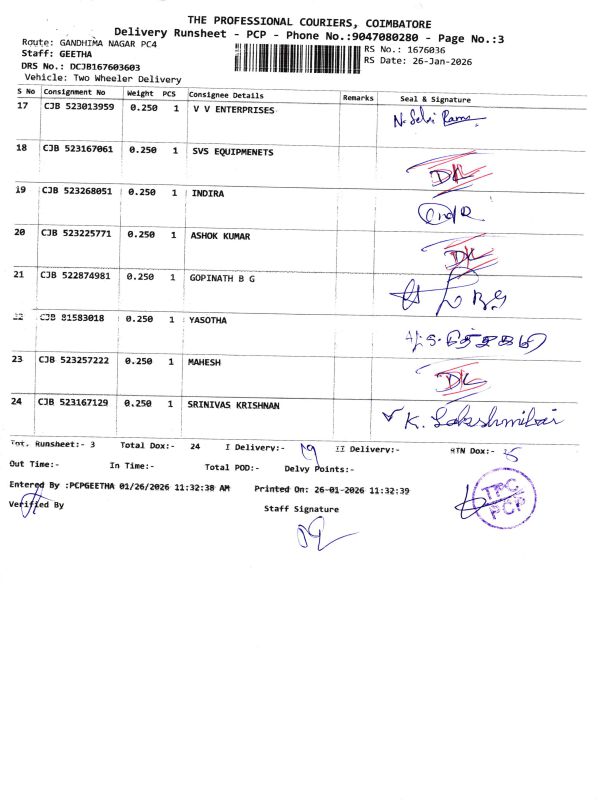 THE PROFESSIONAL COURIERS, COIMBATORE
Delivery Runsheet - PCP - Phone No.:9047080280 - Page No.:3
Route: GANDHIMA NAGAR PC4
Staff: GEETHA
DRS No.: DCJB167603603
Vehicle: Two Wheeler Delivery
RS No.: 1676036
RS Date: 26-Jan-2026
S No Consignment No Weight PCS Consignee Details Remarks Seal & Signature
17 CJB 523013959 0.250 1 V V ENTERPRISES N. Selvi Rams
18 CJB 523167061 0.250 1 SVS EQUIPMENETS DL
19 CJB 523268051 0.250 1 INDIRA
20 CJB 523225771 0.250 1 ASHOK KUMAR DL
21 CJB 522874981 0.250 1 GOPINATH B G B G
22 CJB 81583018 0.250 1 YASOTHA
23 CJB 523257222 0.250 1 MAHESH DL
24 CJB 523167129 0.250 1 SRINIVAS KRISHNAN K. Lakshmibai
Tot. Runsheet:- 3 Total Dox:- 24 I Delivery:- 19 II Delivery:- RTN Dox:- 5
Out Time:- In Time:- Total POD:- Delvy Points:-
Entered By :PCPGEETHA 01/26/2026 11:32:38 AM Printed On: 26-01-2026 11:32:39
Verified By Staff Signature
TPC
PCP